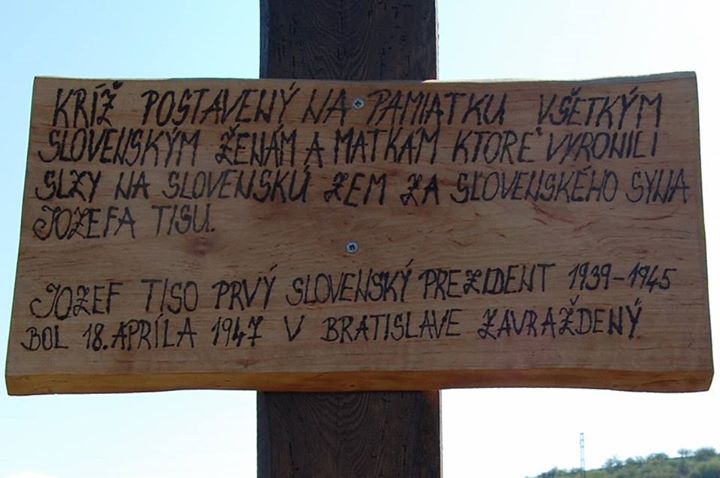 KRÍŽ POSTAVENÝ NA PAMIATKU VŠETKÝM
SLOVENSKÝM ŽENÁM A MATKÁM KTORÉ VYRONILI
SLZY NA SLOVENSKÚ ZEM ZA SLOVENSKÉHO SYNA
JOZEFA TISU.
JOZEF TISO PRVÝ SLOVENSKÝ PREZIDENT 1939-1945
BOL 18. APRÍLA 1947 V BRATISLAVE ZAVRAŽDENÝ.